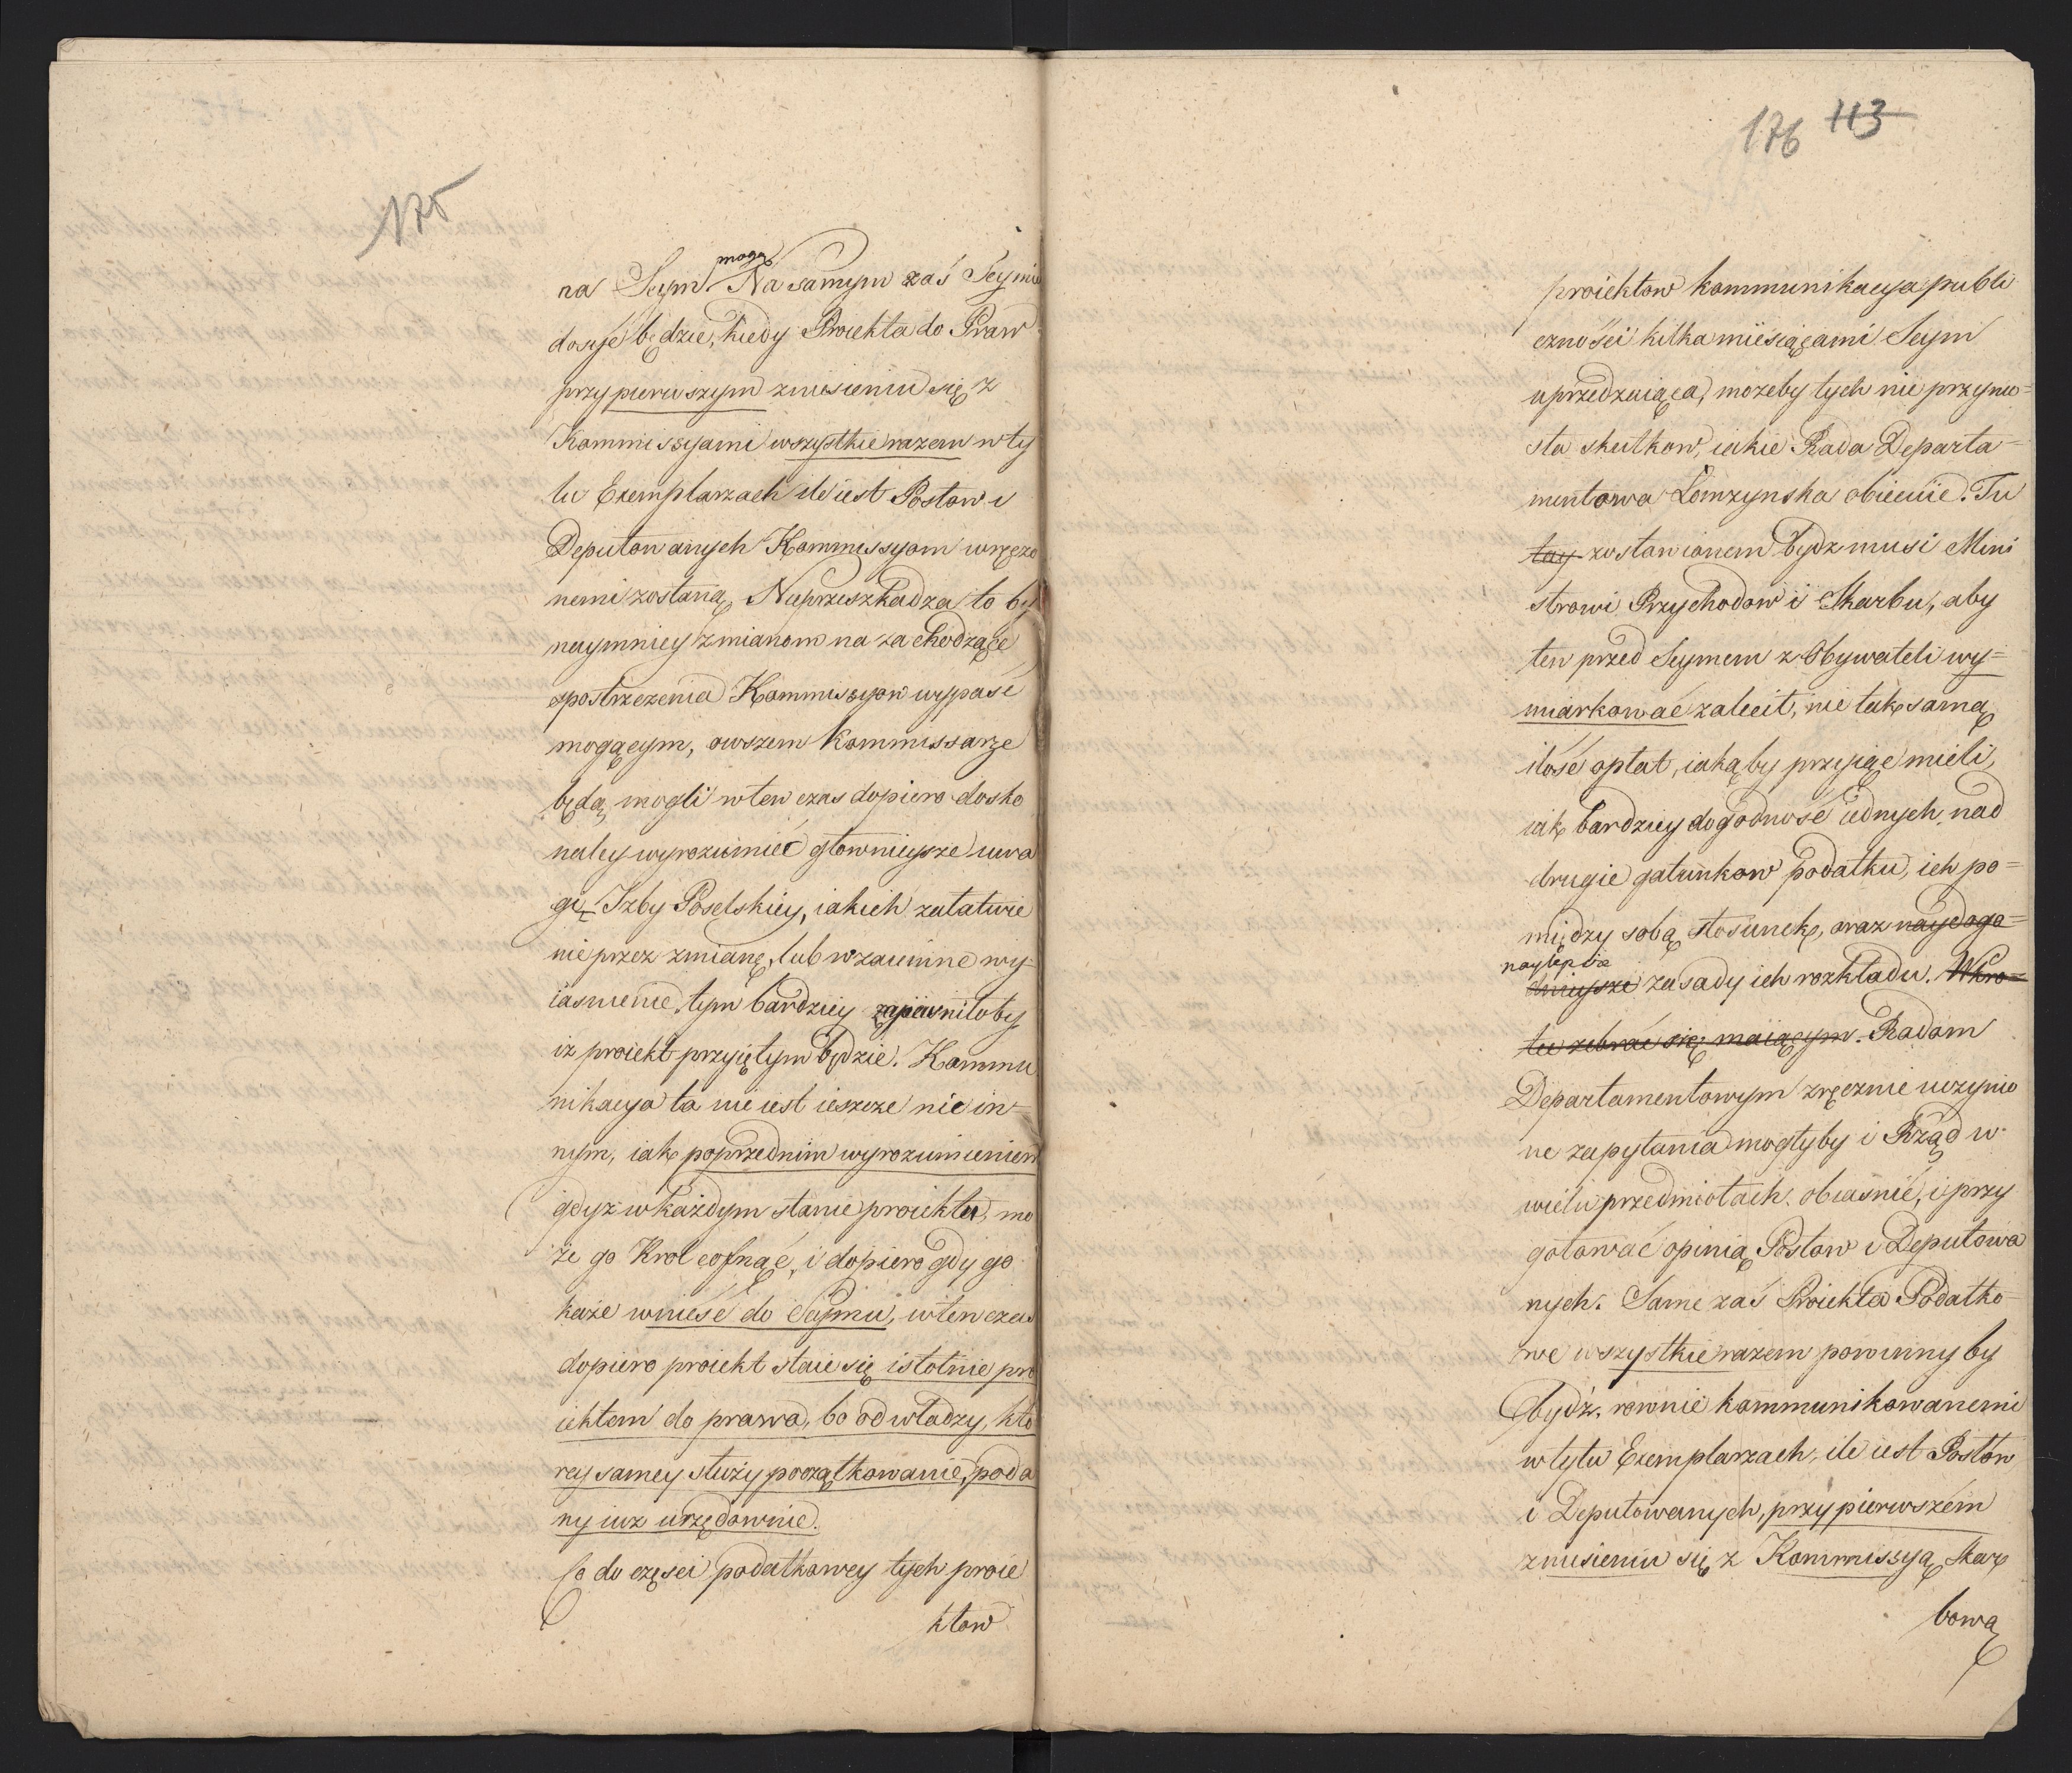 175
mogą
na Seym Na samym zaś Seymie
dosyć będzie, kiedy Proiekta do Praw
przy pierwszym zniesieniu się z
Kommissyami wszystkie razem w ty
lu Exemplarzach ile iest Posłow i
Deputowanych Kommissyom wręczo
nemi zostaną. Nieprzeszkadza to by
naymniey zmianom na zachodzące
spostrzeżenia Kommissyow wypaść
mogącym, owszem Kommissarze
będą mogli w ten czas dopiero dosko
naley wyrozumieć głownieysze uwa
gi Izby Poselskiey, iakich załatwie
nie przez zmianę, lub wzaiemne wy=
iasnienie, tym bardziey zapewniłoby
iż proiekt przyiętym będzie. Kommu
nikacya ta nie iest ieszcze nic in=
nym, iak poprzednim wyrozumieniem
gdyż w każdym stanie proiektu, mo
że go Krol cofnąć, i dopiero gdy go
każe wnieść do Seymu, w ten czas
dopiero proiekt staie się istotnie pro
iektem do prawa, bo od władzy, kto
rey samey służy początkowanie, poda
ny iuż urzędownie.
Co do części podatkowey tych proie
ktow
176 113
proiektow kommunikacya publi
czności kilka miesiącami Seym
uprzedzaiąca, możeby tych nie przynio=
sła skutkow, iakie Rada Departa=
mentowa Łomzynska obiecuie. Tu
tay zostawionem bydź musi Mini
strowi Przychodow i Skarbu, aby
ten przed Seymem z Obywateli wy=
miarkować zalecił, nie tak samą
ilość opłat, iakąby przyiąć mieli,
iak bardziey dogodność iednych nad
drugie gatunkow podatku, ich po=
między sobą stosunek, oraz naydogo=
naylepsze
dnieysze zasady ich rozkładu. Wkro=
tce zebrać się maiącym. Radom
Departamentowym zręcznie uczynio
ne zapytania mogłyby i Rząd w
wielu przedmiotach obiaśnić, i przy
gotować opinią Posłow i Deputowa
nych. Same zaś Proiekta Podatko=
we wszystkie razem powinny by
bydź rownie kommunikowanemi
w tylu Exemplarzach, ile iest Posłow
i Deputowanych, przy pierwszém
zniesieniu się z Kommissyą Skar
bową